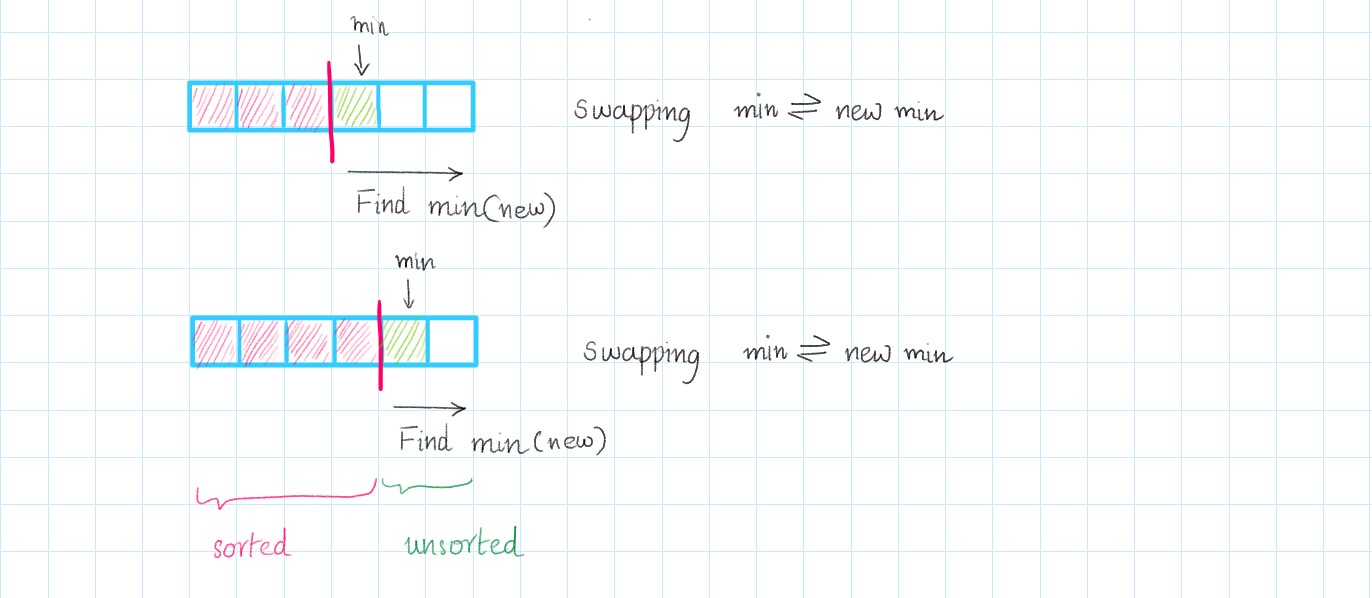 min
Swapping min ⇌ new min
Find min(new)
min
Swapping min ⇌ new min
Find min(new)
sorted unsorted